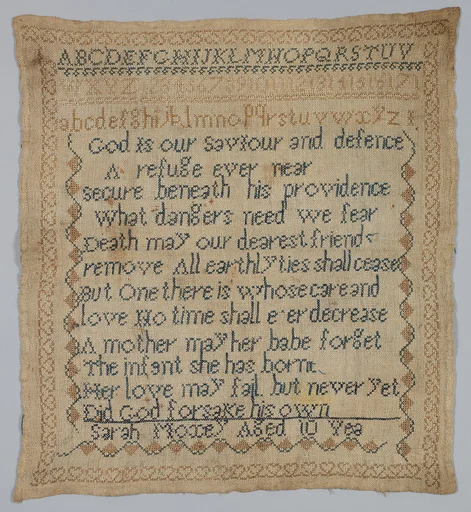 ABCDEFGHIJKLMNOPQRSTUV
abcdefghijklmnopqrstuvwxyz
God is our saviour and defence
A refuge ever near
secure beneath his providence
What dangers need we fear
Death may our dearest friend
remove All earthly ties shall cease
But One there is Whose care and
love No time shall e'er decrease
A mother may her babe forget
The infant she has born
Her love may fail but never yet
Did God forsake his own
Sarah Aged 10 Yea